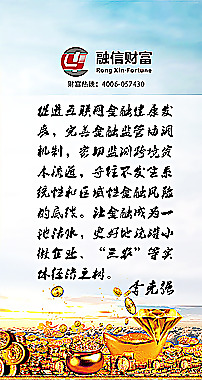 融信财富
Rong Xin-Fortune
财富热线：4006-057430
促进互联网金融健康发
展，完善金融监管协调
机制，密切监测跨境资
本流通，守住不发生系
统性和区域性金融风险
的底线。让金融成为一
池活水，更好地浇灌小
微企业、“三农”等实
体经济之树。
李克强